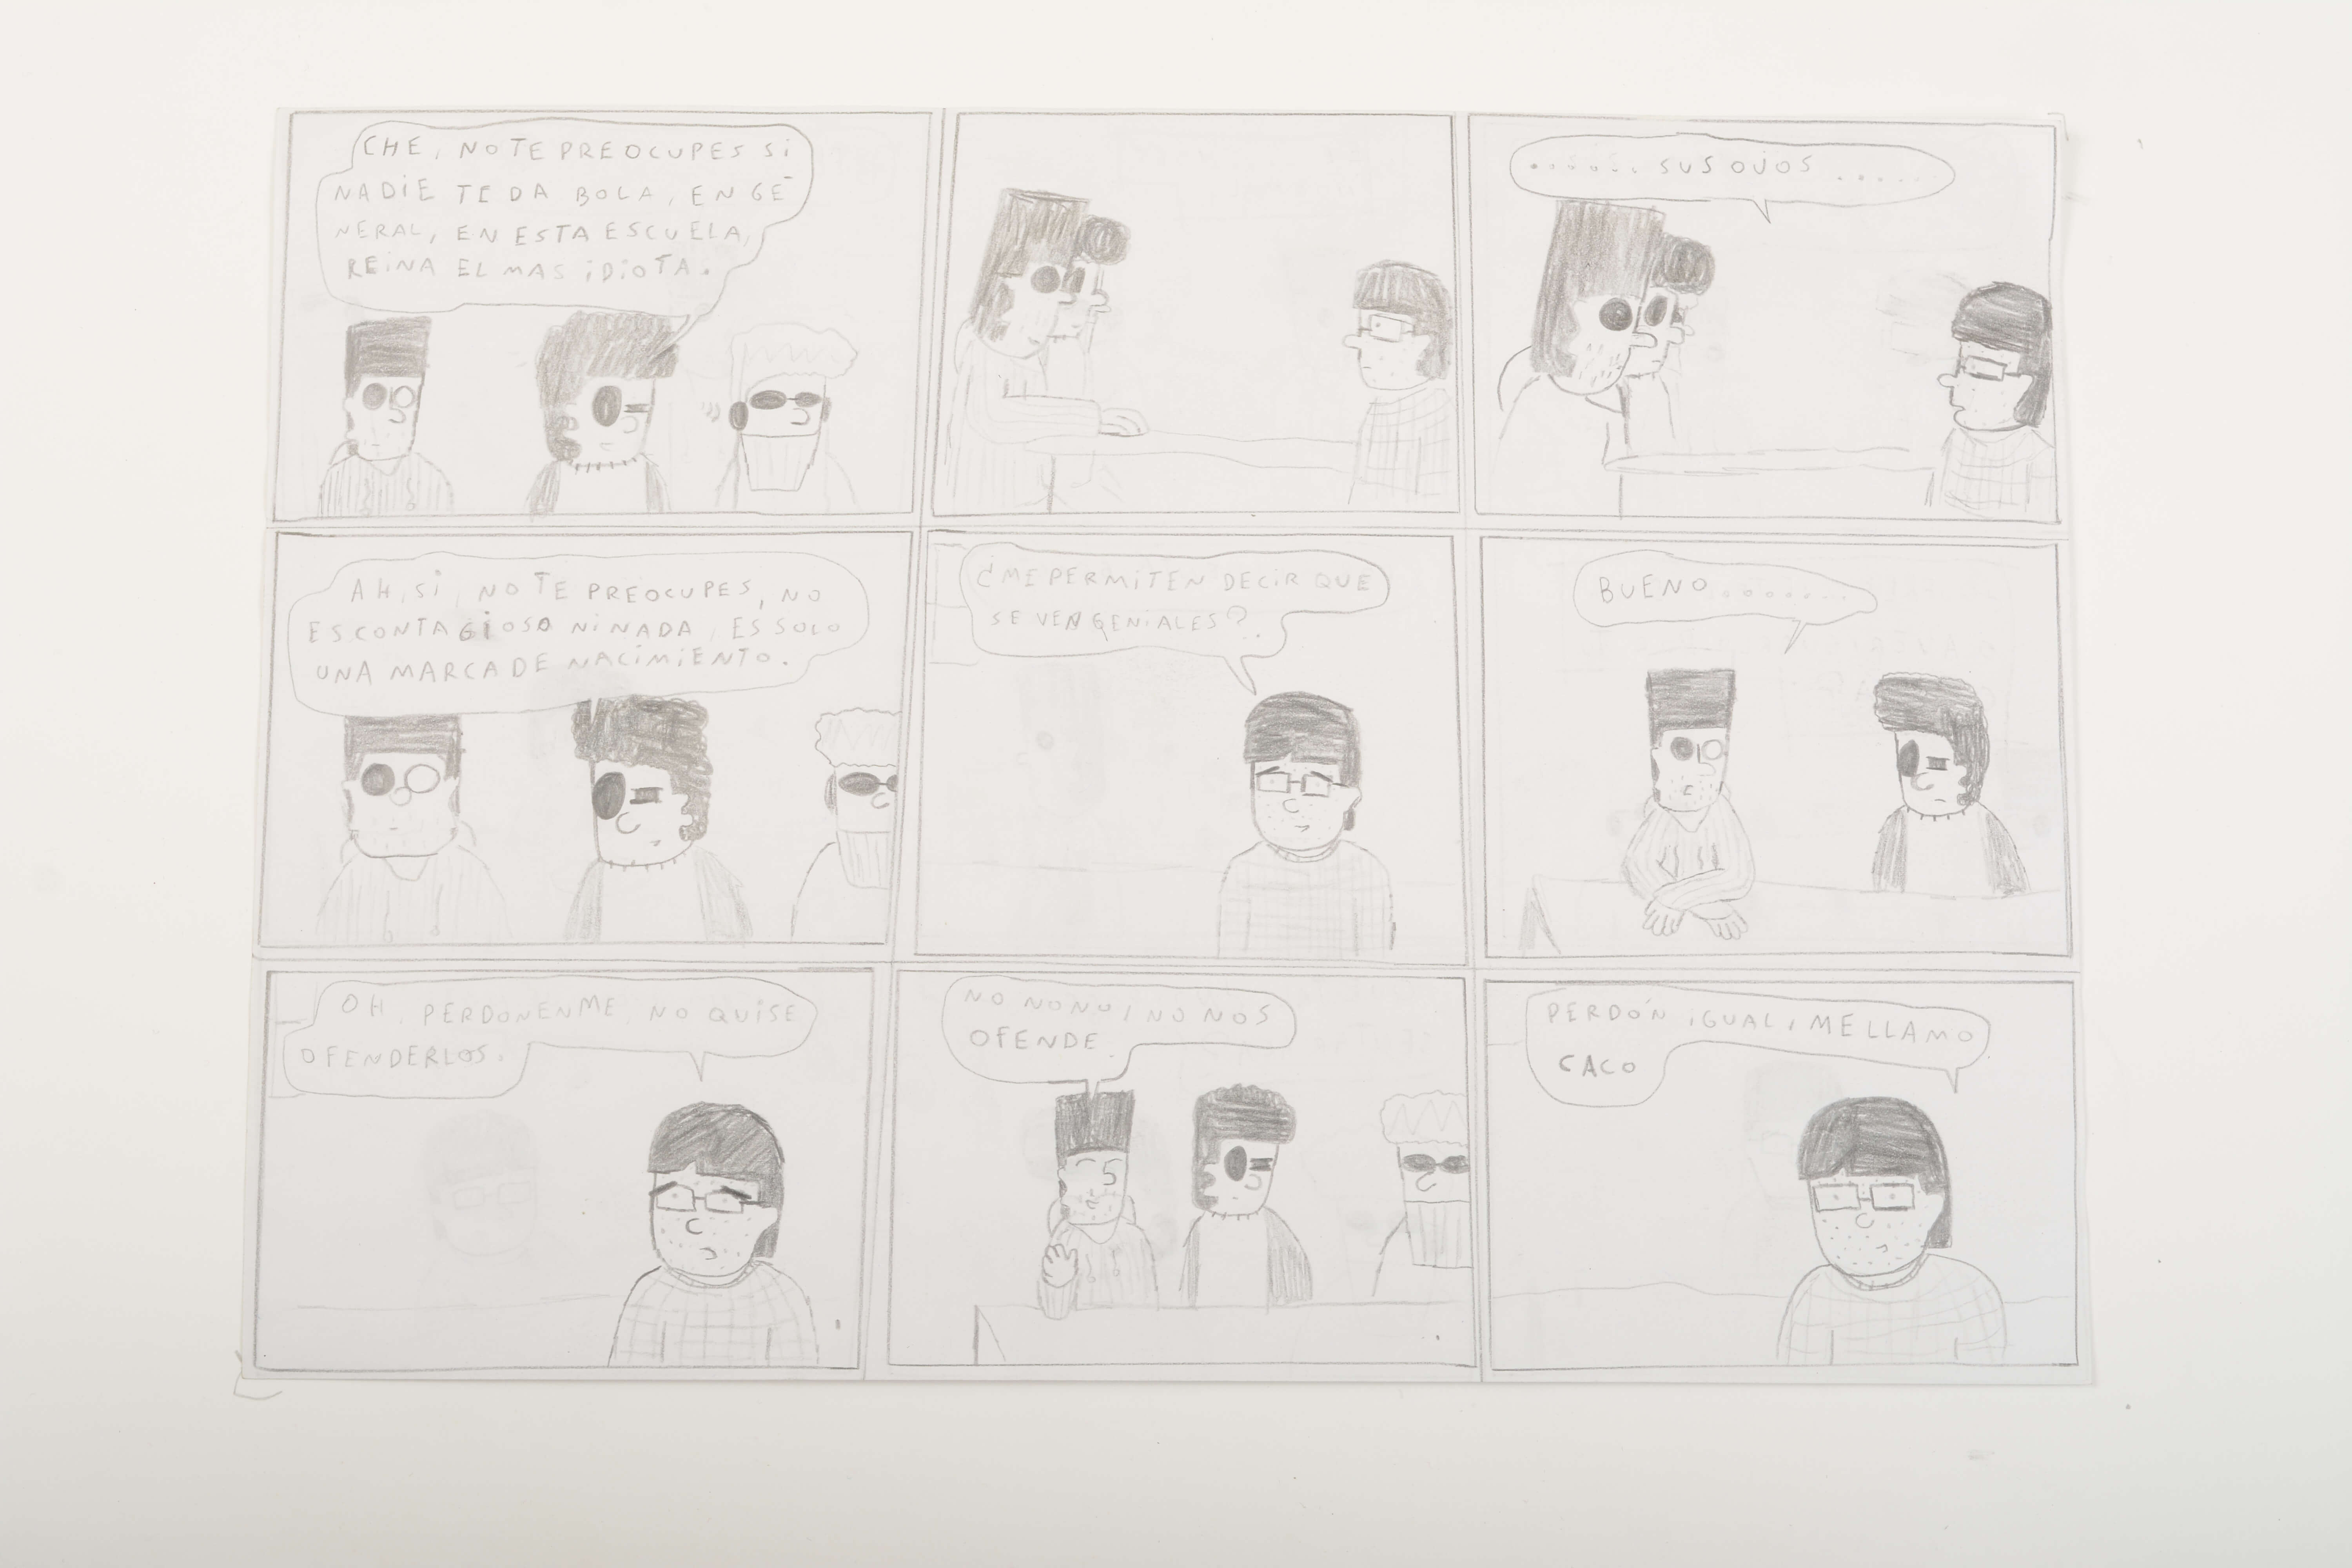 CHE, NO TE PREOCUPES SI
NADIE TE DA BOLA, EN GE-
NERAL, EN ESTA ESCUELA,
REINA EL MAS IDIOTA.
...... SUS OJOS ......
AH, SI, NO TE PREOCUPES, NO
ES CONTAGIOSO NI NADA, ES SOLO
UNA MARCA DE NACIMIENTO.
¿ME PERMITEN DECIR QUE
SE VEN GENIALES?.
BUENO ........
OH, PERDONENME, NO QUISE
OFENDERLOS.
NO NONO, NO NOS
OFENDE.
PERDÓN IGUAL, ME LLAMO
CACO